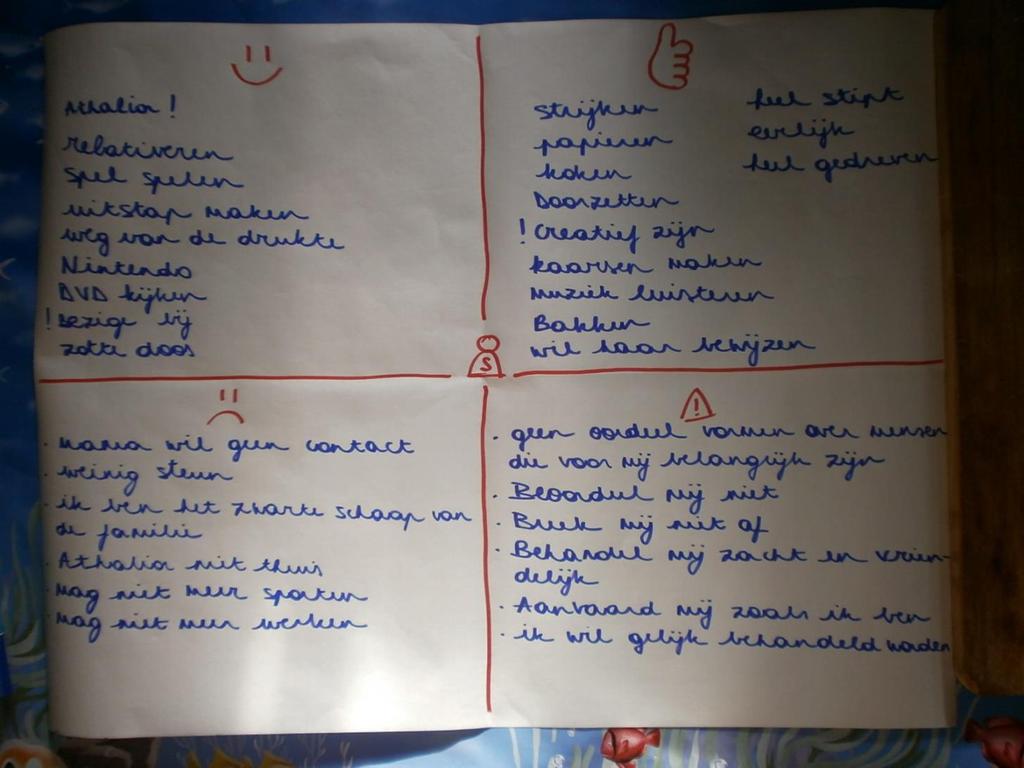 Athalia!
relativeren
spel spelen
uitstap maken
weg van de drukte
Nintendo
DVD kijken
! bezige bij
zotte doos
strijken
papieren
koken
Doorzetten
! Creatief zijn
kaarsen maken
muziek luisteren
Bakken
wil haar bewijzen
heel stipt
eerlijk
heel gedreven
S
· mama wil geen contact
· weinig steun
· ik ben het zwarte schaap van
de familie
· Athalia niet thuis
· mag niet meer sporten
· mag niet meer werken
!
· geen oordeel vormen over mensen
die voor mij belangrijk zijn
· Beoordeel mij niet
· Breek mij niet af
· Behandel mij zacht en vrien-
delijk
· Aanvaard mij zoals ik ben
· ik wil gelijk behandeld worden